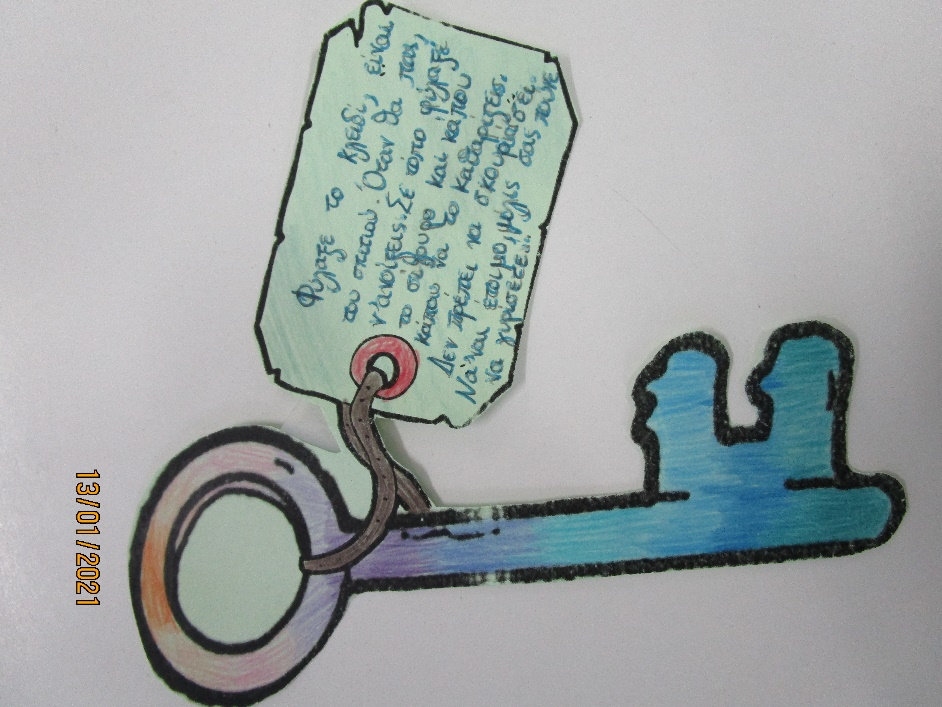 Φύλαξε το κλειδί, είναι
του σπιτιού. Όταν θα πας,
ν'ανοίξεις. Σε τόπο φύλαξέ
το σίγουρο και κάπου
κάπου να το καθαρίζεις.
Δεν πρέπει να σκουριάσει.
Να'ναι έτοιμο, μόλις σας πούνε
να γυρίσετε...
13/01/2021